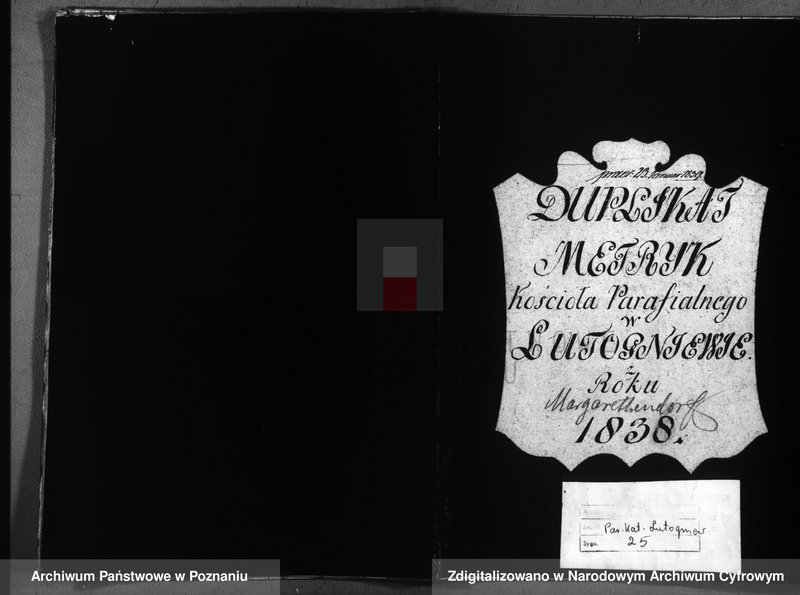 praes. 23. Januar 1839
DUPLIKAT
METRYK
Kościoła Parafialnego
w
LUTOGNIEWIE.
z
Roku
Margarethendorf
1838.
Par. Kat. Lutogniew
Sygn. 25
ARCHIWUM PAŃSTWOWE
W POZNANIU
Archiwum Państwowe w Poznaniu
Zdigitalizowano w Narodowym Archiwum Cyfrowym